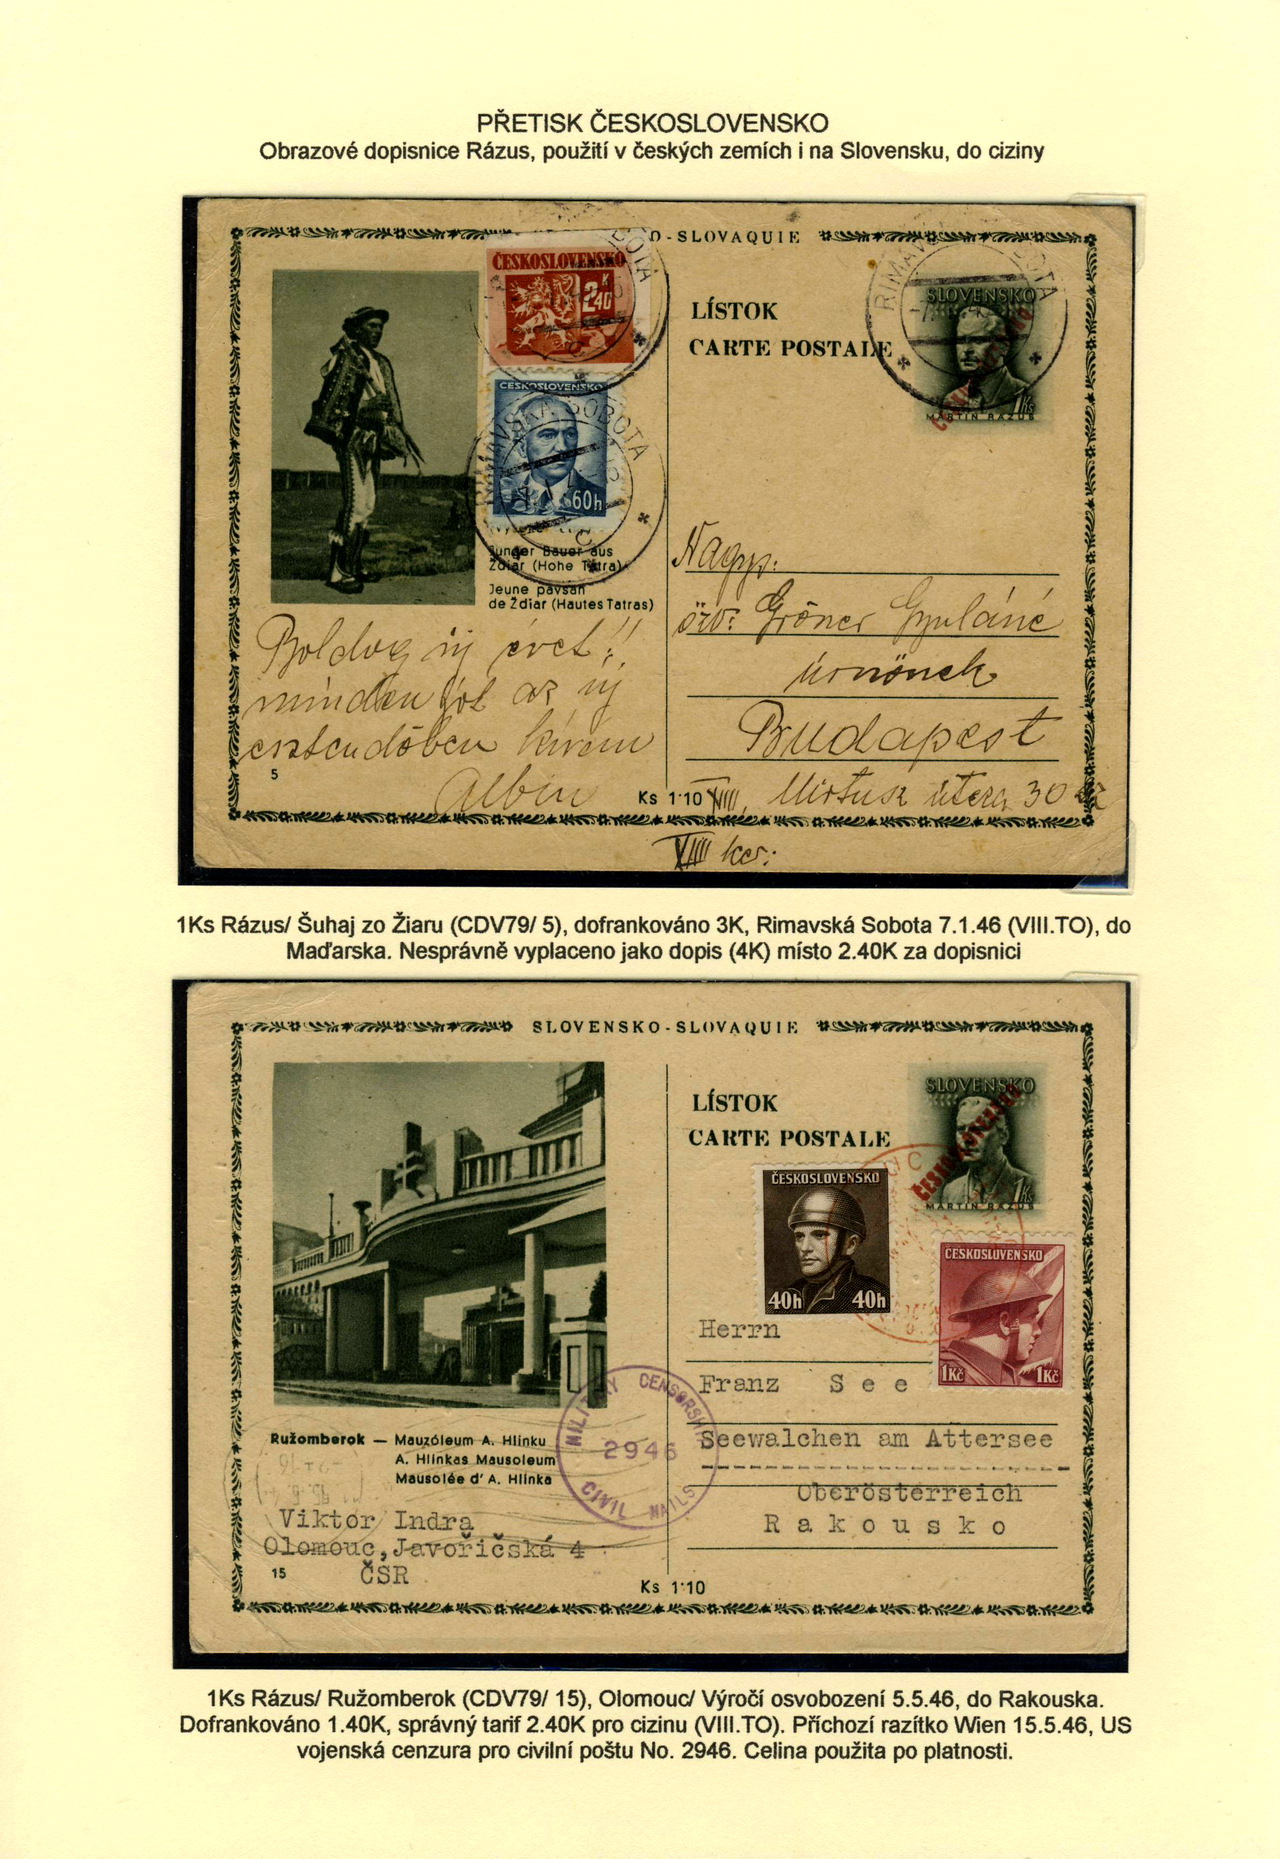 PŘETISK ČESKOSLOVENSKO
Obrazové dopisnice Rázus, použití v českých zemích i na Slovensku, do ciziny
O-SLOVAQUIE
ČESKOSLOVENSKO
2 K 40
ČESKOSLOVENSKO
60h
RIMAVSKÁ SOBOTA
LÍSTOK
CARTE POSTALE
SLOVENSKO
1Ks
MARTIN RÁZUS
Junger Bauer aus
Ždiar (Hohe Tatra)
Jeune paysan
de Ždiar (Hautes Tatras)
Boldog új évet!!
minden jót az új
esztendőben kívánom
Albin
5
Ks 1·10
Nagys.
özv. Gröner Gyuláné
úrnőnek
Budapest
VIII.
útcza 30
VIII ker:
1Ks Rázus/ Šuhaj zo Žiaru (CDV79/ 5), dofrankováno 3K, Rimavská Sobota 7.1.46 (VIII.TO), do
Maďarska. Nesprávně vyplaceno jako dopis (4K) místo 2.40K za dopisnici
SLOVENSKO-SLOVAQUIE
LÍSTOK
CARTE POSTALE
SLOVENSKO
ČESKOSLOVENSKO
1Ks
MARTIN RÁZUS
ČESKOSLOVENSKO
40h 40h
ČESKOSLOVENSKO
1Kč 1Kč
Herrn
Franz See
Seewalchen am Attersee
Oberösterreich
Rakousko
MILITARY CENSORSHIP
2946
CIVIL MAILS
Ružomberok — Mauzóleum A. Hlinku
A. Hlinkas Mausoleum
Mausolée d' A. Hlinka
Viktor Indra
Olomouc, Javoříčská 4
ČSR
15
Ks 1·10
1Ks Rázus/ Ružomberok (CDV79/ 15), Olomouc/ Výročí osvobození 5.5.46, do Rakouska.
Dofrankováno 1.40K, správný tarif 2.40K pro cizinu (VIII.TO). Příchozí razítko Wien 15.5.46, US
vojenská cenzura pro civilní poštu No. 2946. Celina použita po platnosti.